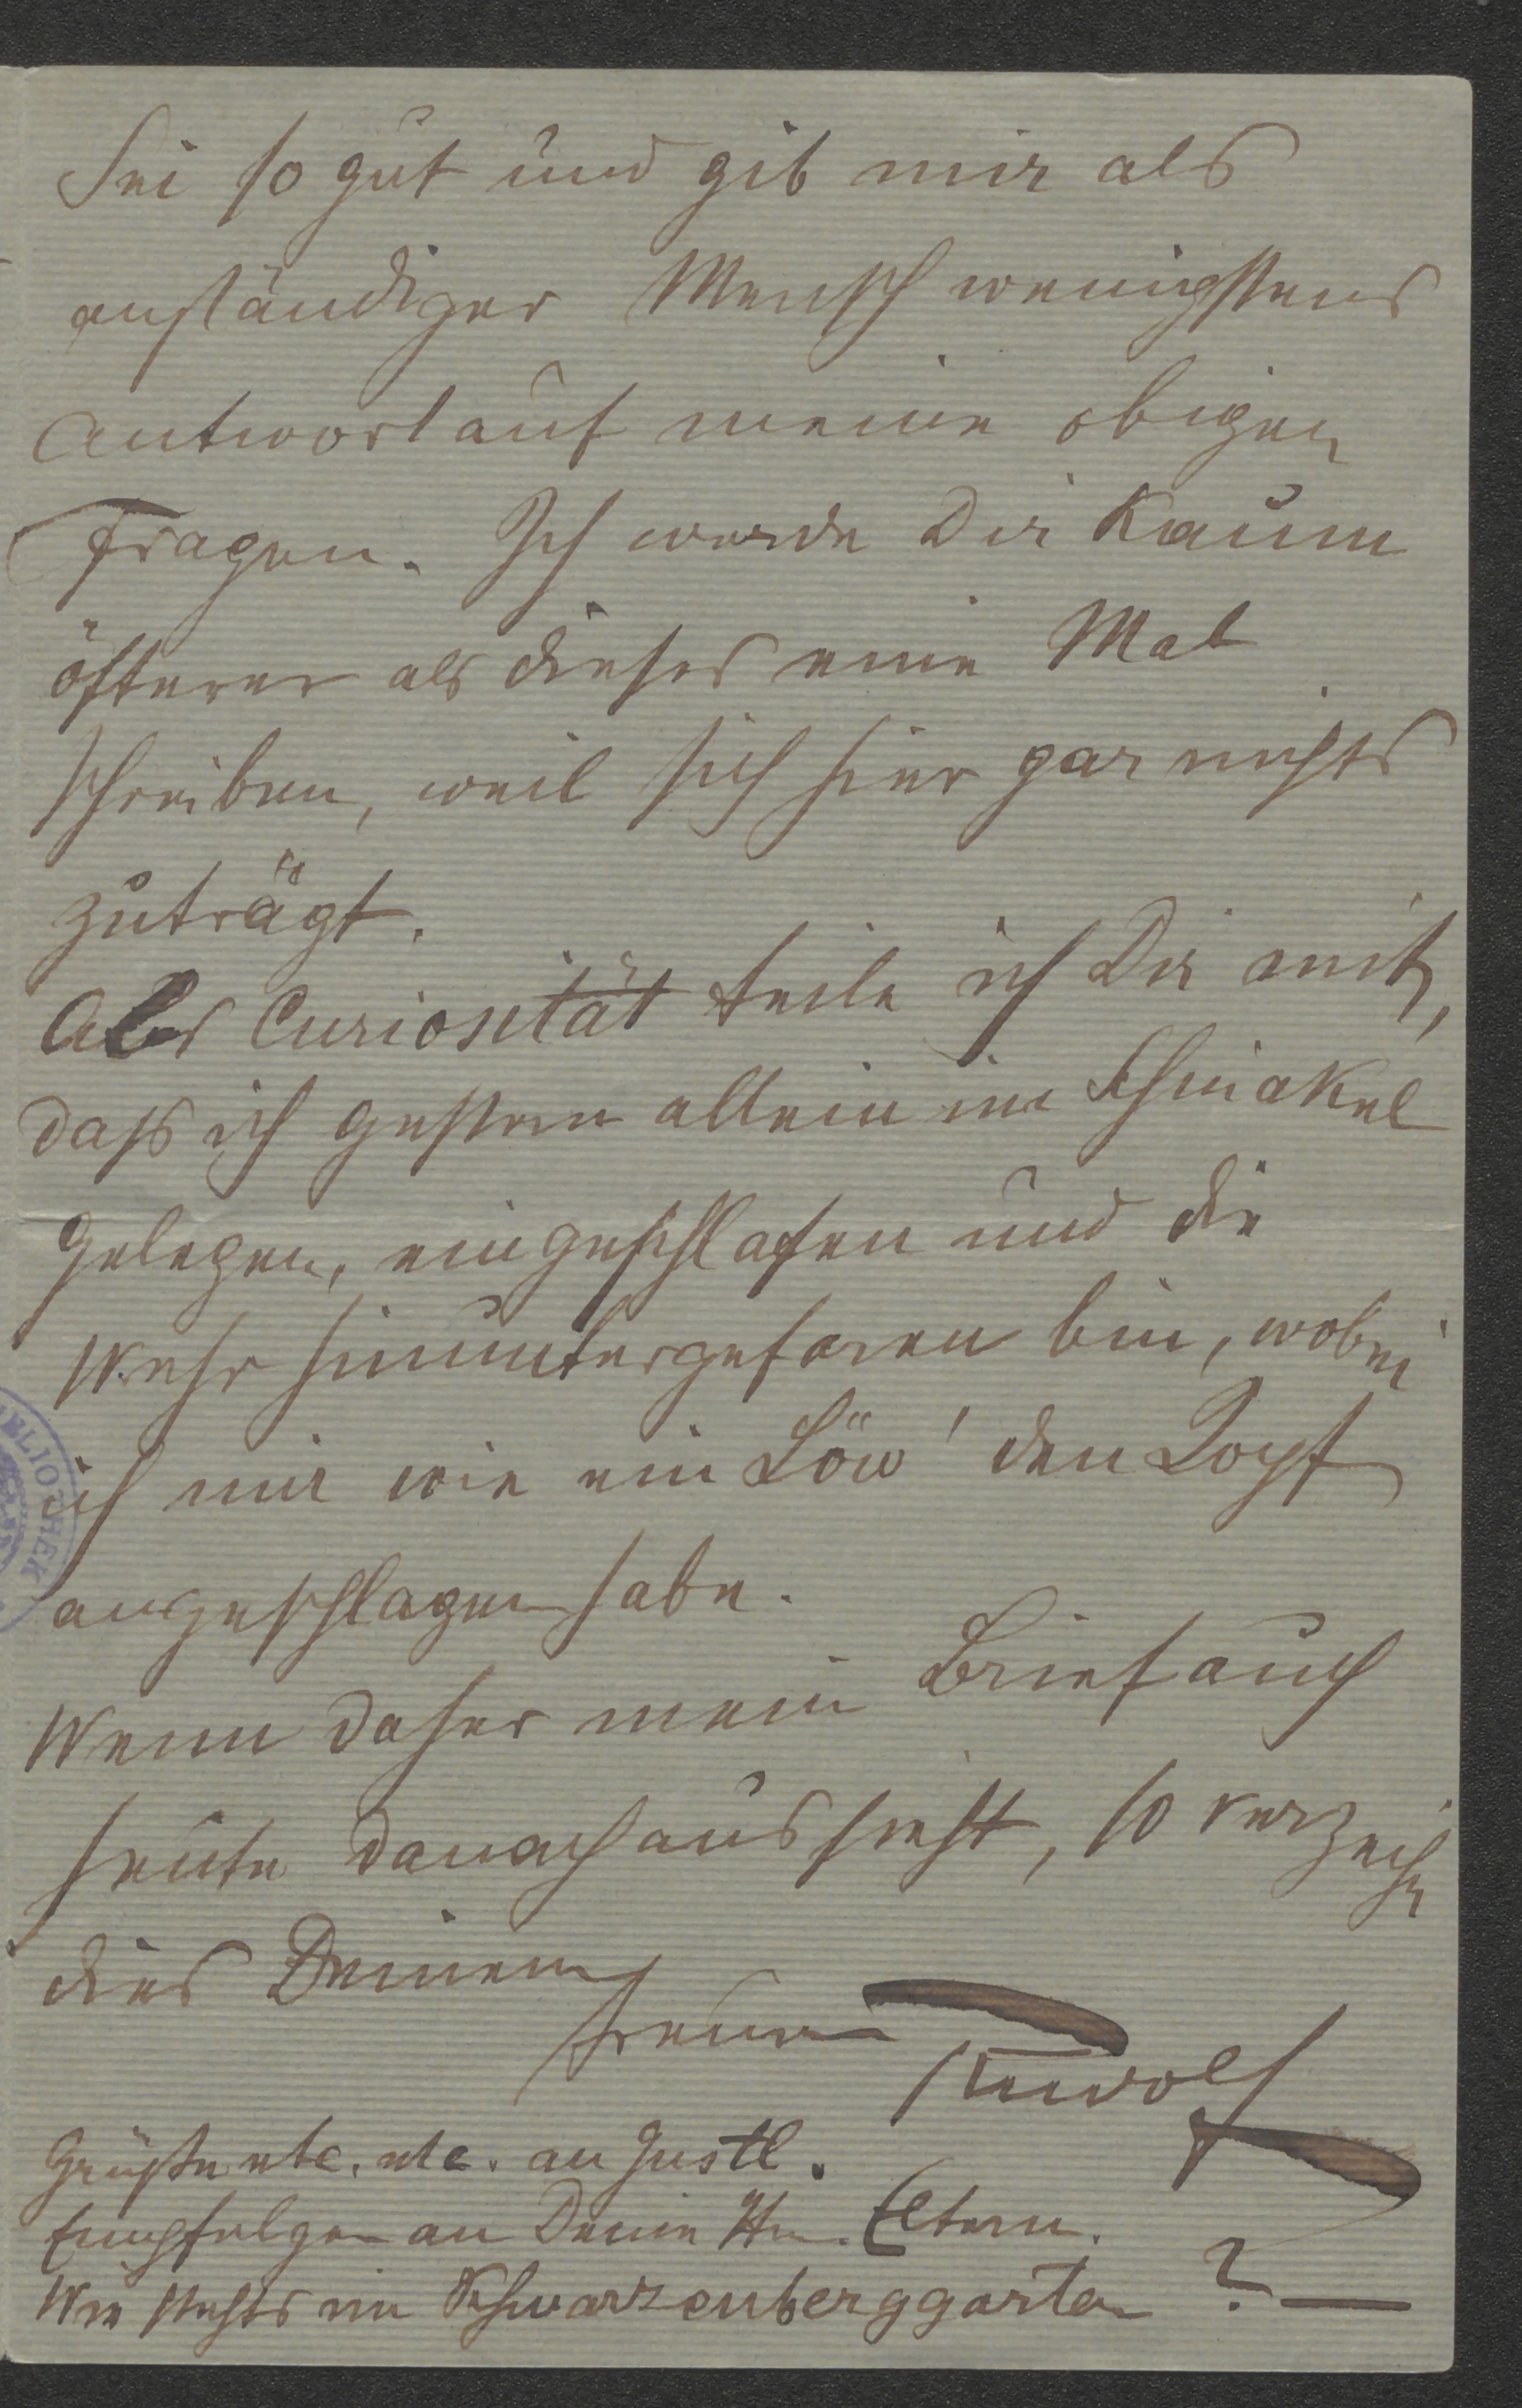 Sei so gut und gib mir als
anständiger Mensch wenigstens
Antwort auf meine obigen
Fragen. Ich werde Dir kaum
öfterer als dieses eine Mal
schreiben, weil sich hier gar nichts
zuträgt.
Als Curiosität teile ich Dir mit,
dass ich gestern allein im Schinakel
gelegen, eingeschlafen und die
Wehr hinuntergefaren bin, wobei
ich mir wie ein Löw' den Kopf
angeschlagen habe.
Wenn daher mein Brief auch
heute danach aussieht, so verzeih
dies Deinem
treuen
Rudolf
Grüße etc. etc. an Gustl.
an Deine Eltern.
Wie stehts im Schwarzenberggarten?—
BIBLIOTHEK